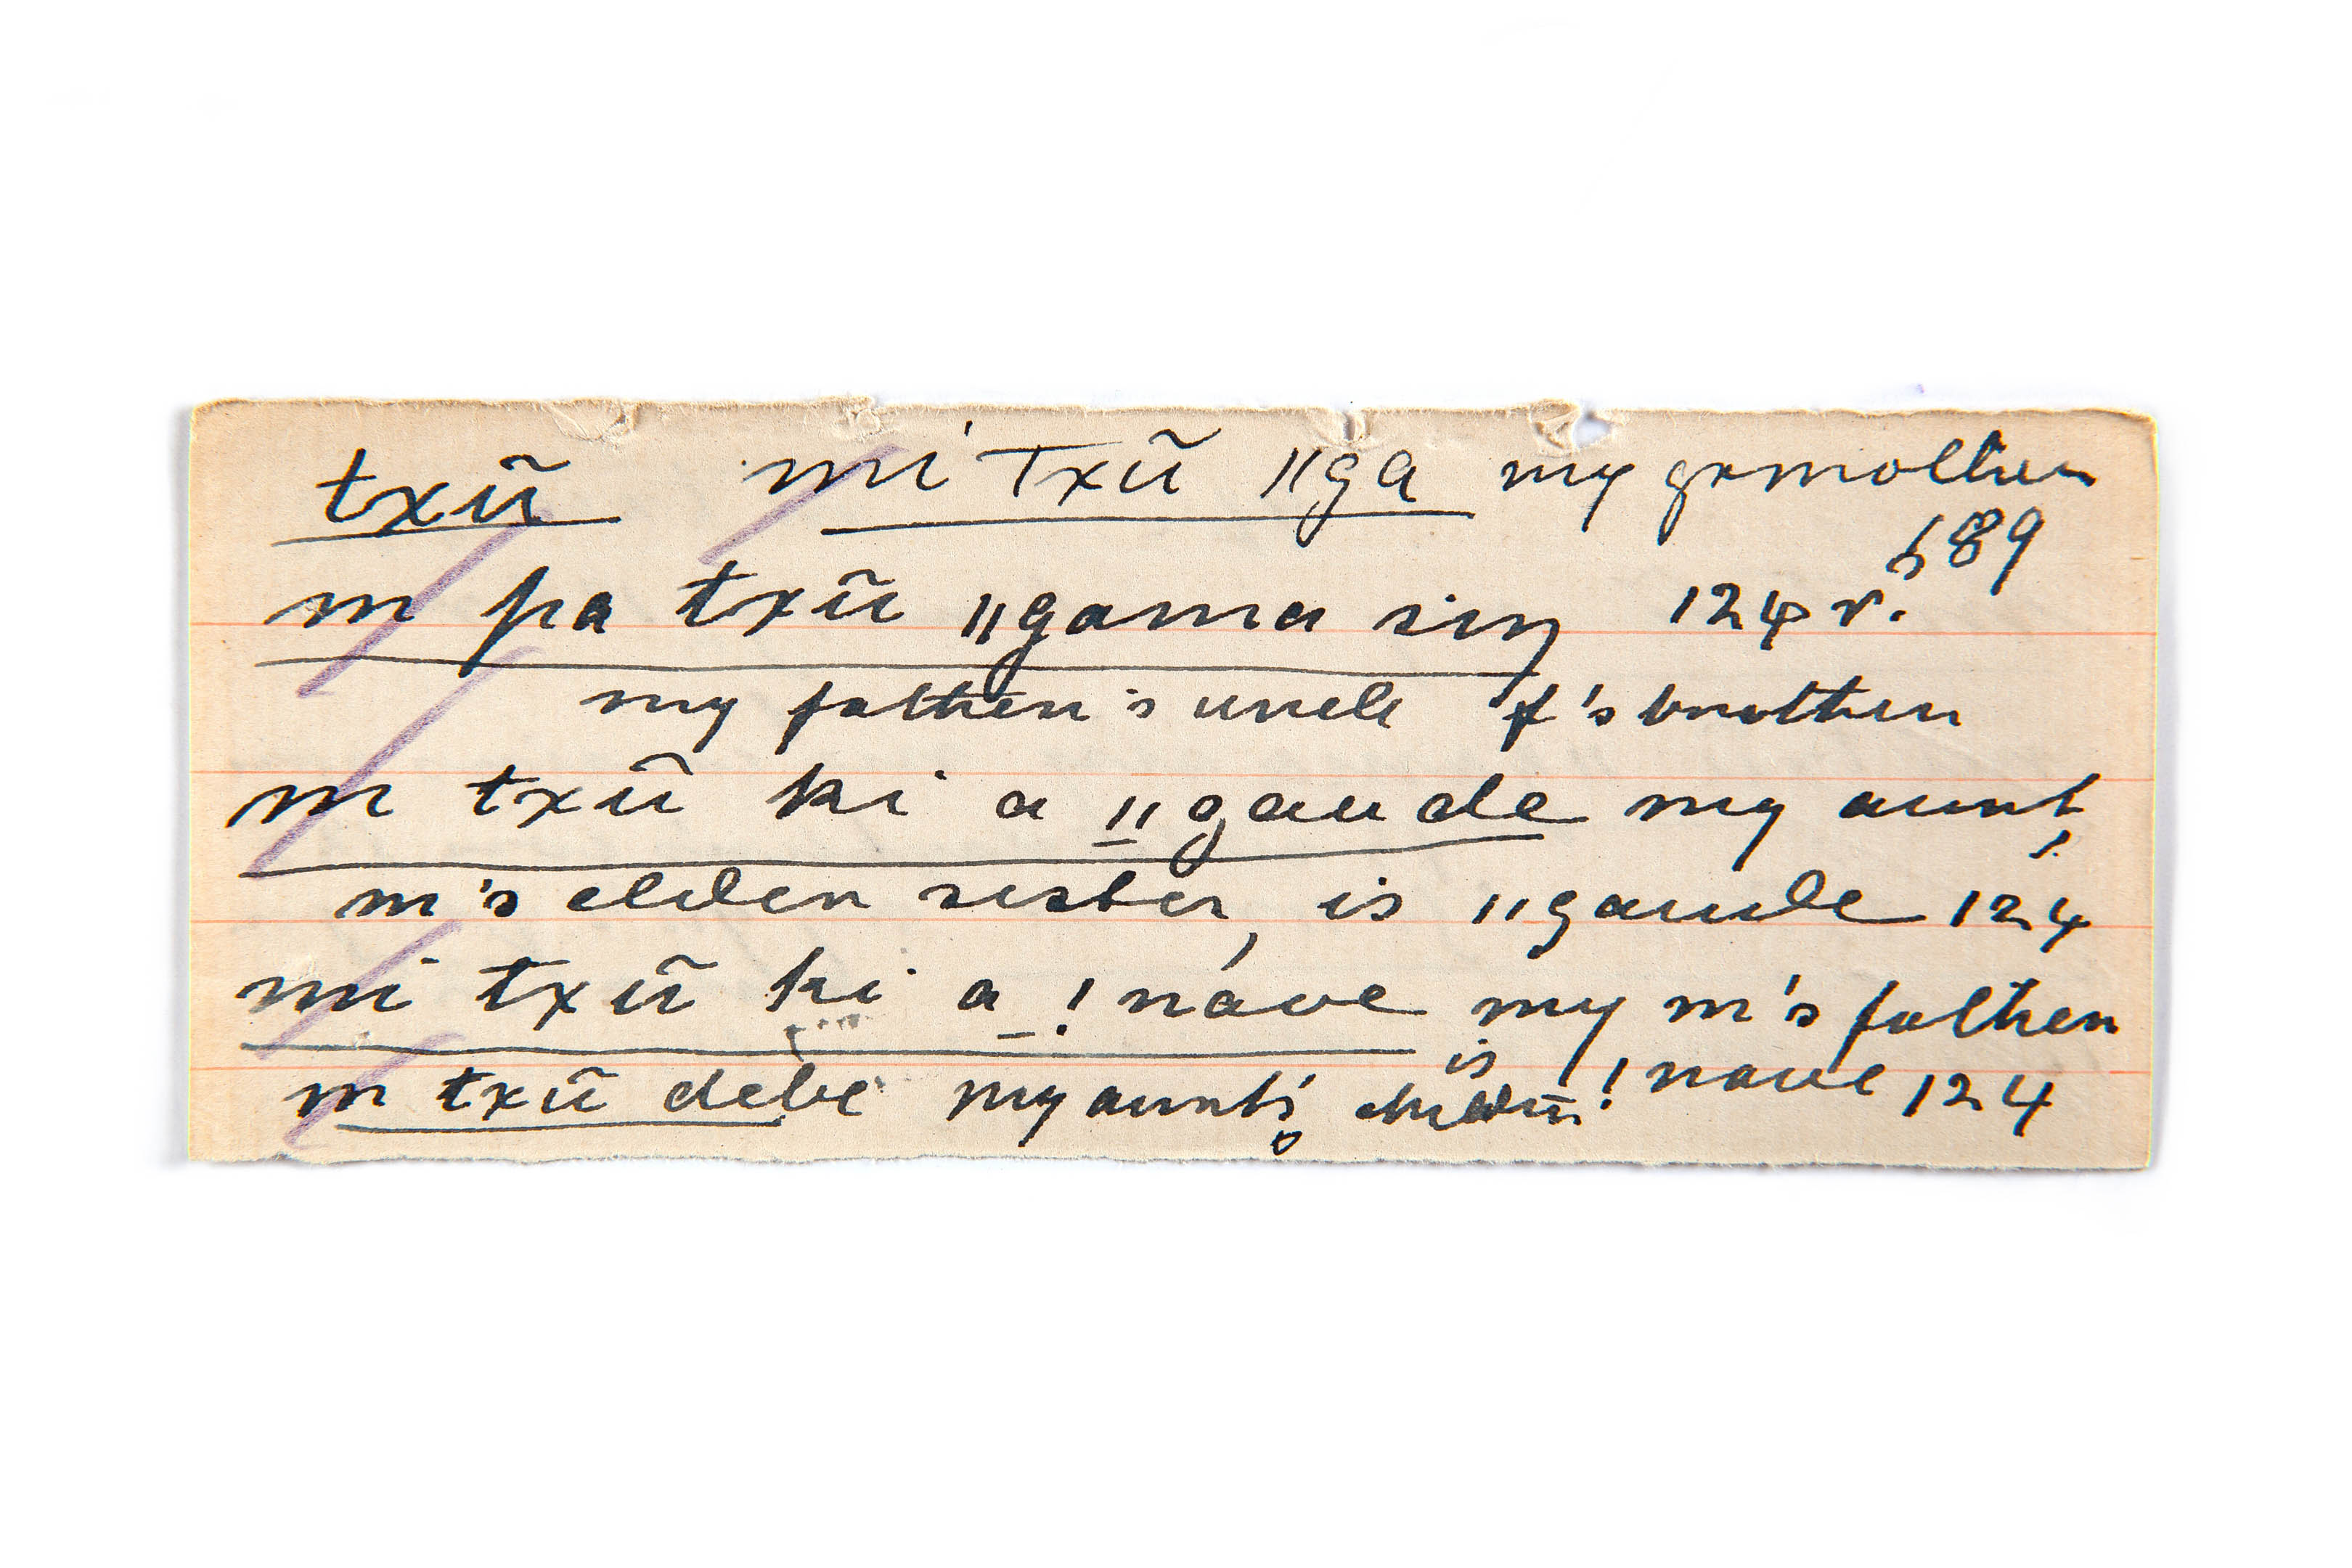 txũ mi txũ ǁga my grmother
189
m pa txũ ǁgama sin 124 r.
my father's uncle f's brother
m txũ ki a ǁgaude my aunt,
m's elder sister, is ǁgaude 124
mi txũ ki a !náve my m's father
is !nave 124
m txũ debe my aunt's children